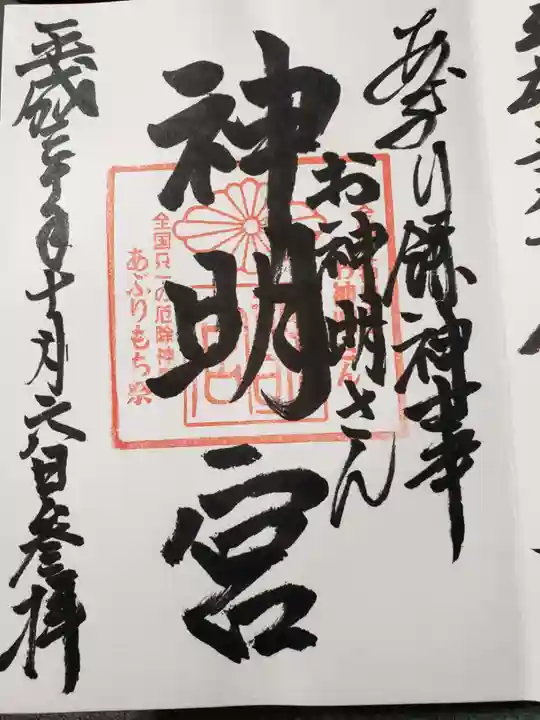 あぶり餅神事
お神明さん
神明宮
全国只一の厄除神
あぶりもち祭
平成三十年十月六日参拝